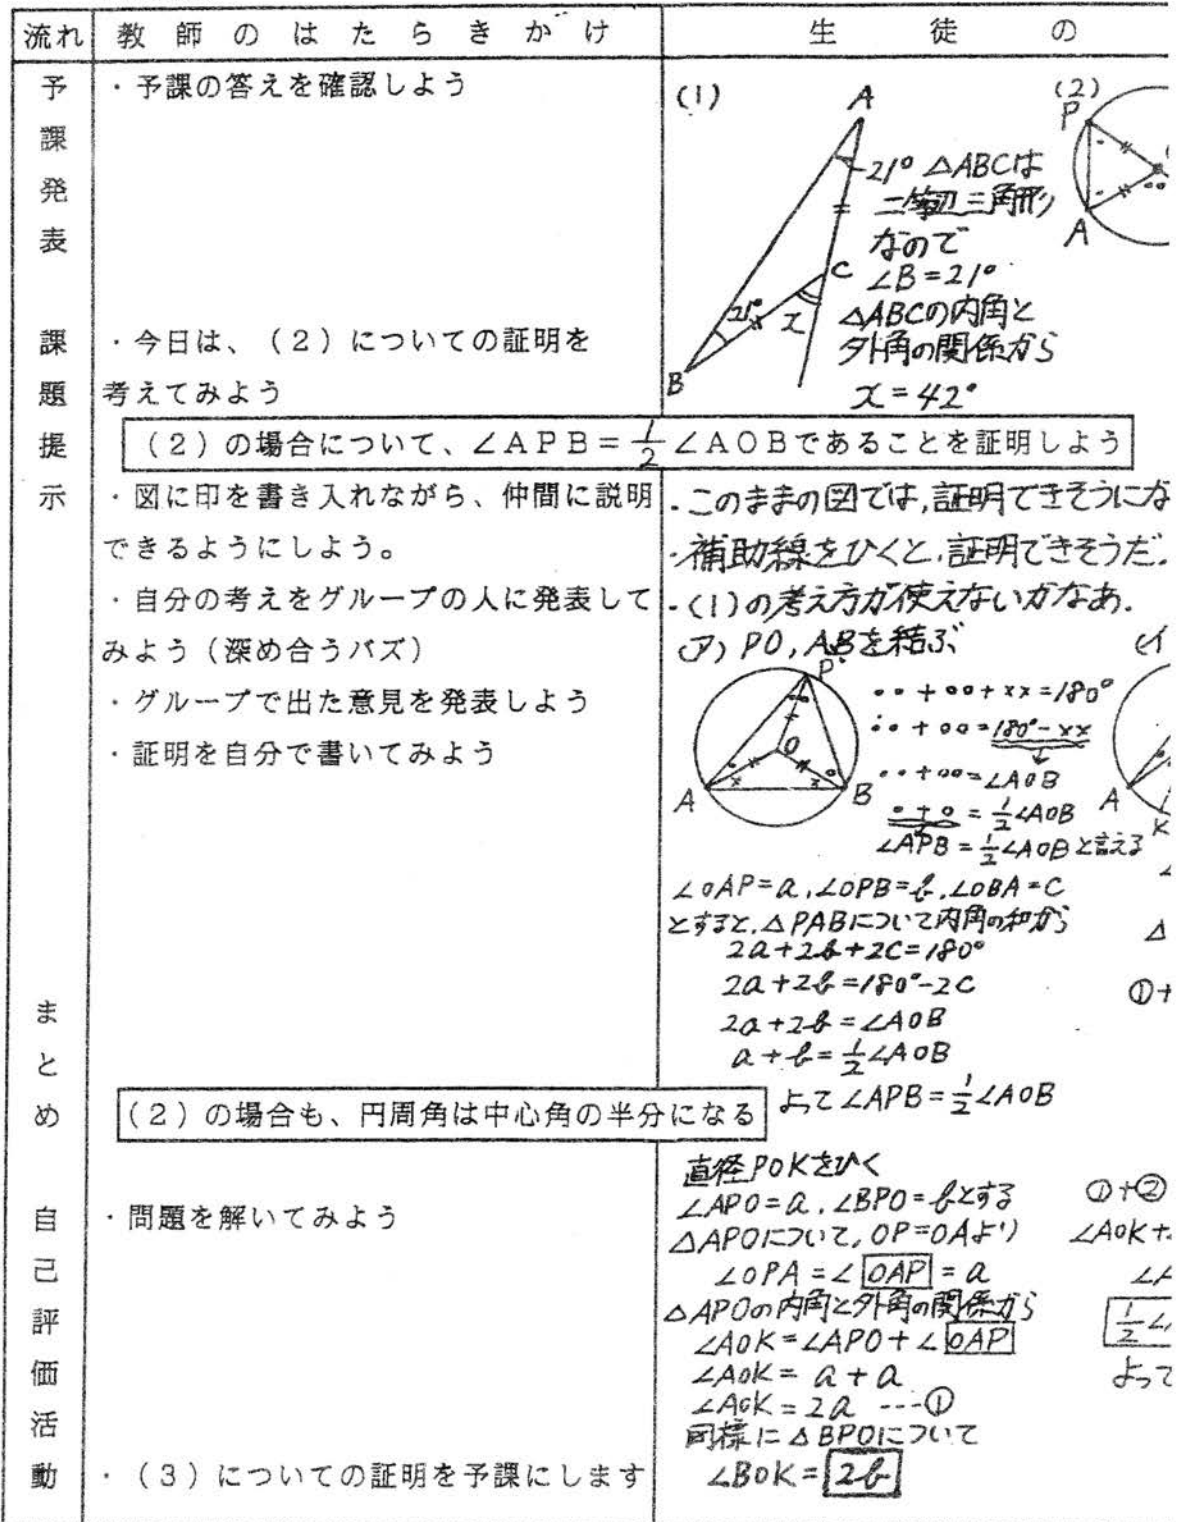 流れ 教師のはたらきかけ 生徒の
予課発表
・予課の答えを確認しよう
(1)
A
21° △ABCは
二等辺三角形
なので
C ∠B=21°
21° x △ABCの内角と
外角の関係から
B
x=42°
(2)
P
A
課題提示
・今日は、(2)についての証明を
考えてみよう
(2)の場合について、∠APB=1/2∠AOBであることを証明しよう
・図に印を書き入れながら、仲間に説明
できるようにしよう。
・自分の考えをグループの人に発表して
みよう(深め合うバズ)
・グループで出た意見を発表しよう
・証明を自分で書いてみよう
・このままの図では,証明できそうにな
・補助線をひくと,証明できそうだ.
・(1)の考え方が使えないかなあ.
(ア) PO, ABを結ぶ
(イ
P
O
A
B
••+∘∘+××=180°
••+∘∘=180°-××
••+∘∘=∠AOB
•+∘=1/2∠AOB
∠APB=1/2∠AOBと言える
A
K
∠OAP=a,∠OPB=b,∠OBA=C
とすると,△PABについて内角の和から
2a+2b+2C=180°
2a+2b=180°-2C
2a+2b=∠AOB
a+b=1/2∠AOB
よって∠APB=1/2∠AOB
∠
△
①+
まとめ
(2)の場合も、円周角は中心角の半分になる
自己評価活動
・問題を解いてみよう
・(3)についての証明を予課にします
直径POKをひく
∠APO=a,∠BPO=bとする
△APOについて,OP=OAより
∠OPA=∠OAP=a
△APOの内角と外角の関係から
∠AOK=∠APO+∠OAP
∠AOK=a+a
∠AOK=2a ---①
同様に△BPOについて
∠BOK=2b
①+②
∠AOK+
∠A
1/2∠
よって